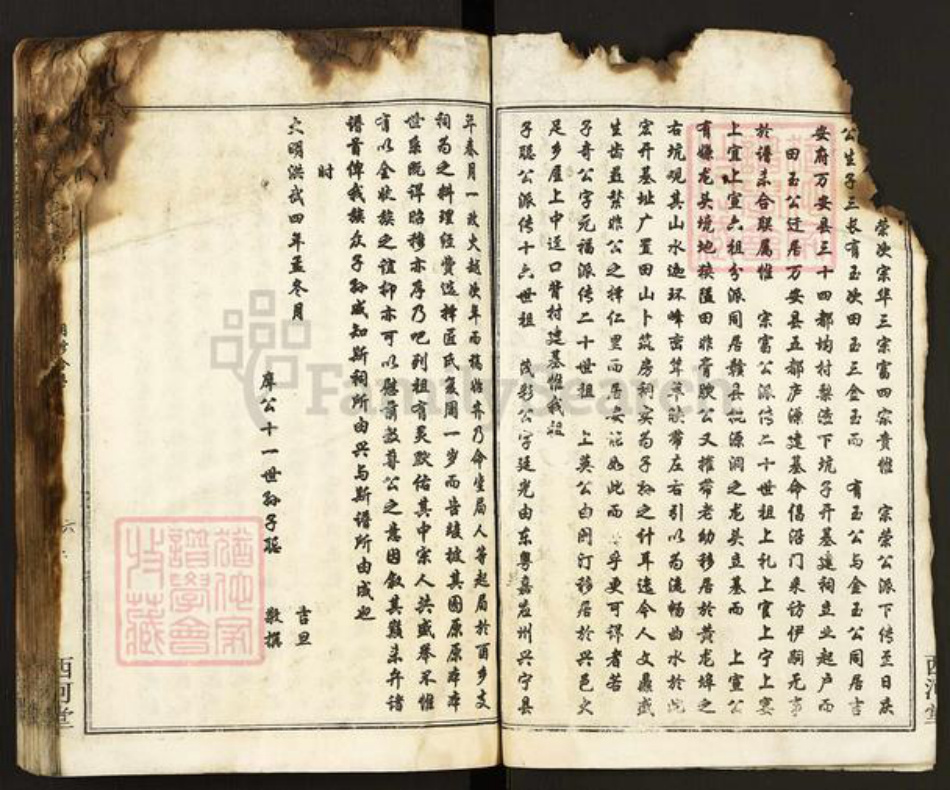 荣次宗华三宗富四宗贵惟 宗荣公派下传至日辰
公生子三长有玉次田玉三金玉而 有玉公与金玉公同居吉
安府万安县三十四都均村梨渣下坑子开基建祠立业起户而
田玉公迁居万安县五都庐源建基命倡沿门采访伊嗣无事
於谱未合联属惟 宗富公派传二十世祖上礼上官上宁上宴
上宜上宣六祖分派同居赣县桃源洞之龙头立基而 上宣公
有嫌龙头境地狭隘田非膏腴公又携带老幼移居於黄龙埠之
右坑观其山水迦环峰密耸翠映带左右引以为流畅曲水於此
宏开基址广置田山卜筑房祠实为子孙之计耳迄今人文鼎盛
生齿益繁非公之择仁里而居安能如此而 乎更可谓者若
子奇公字元福派传二十世祖 上英公由闽汀移居於兴邑火
足乡屋上中迳口背村建基惟我祖
子聪公派传十六世祖 茂彩公字廷光由东粤嘉应州兴宁县
年春月一改火越次年而稿临弃乃命坐局人等起局於酉乡文
祠为之料理经费选择匠氏复周一岁而告竣披其图原原本本
世系既详昭穆亦序乃吧列祖有灵默佑其中宗人共成举不惟
有以全收族之谊抑亦可以慰前敦尊公之意因叙其颠末弁诸
谱首俾我族众子孙咸知斯祠所由兴与斯谱所由成也
时
大明洪武四年孟冬月 吉旦
摩公十一世孙子聪 敬撰
西河堂
西河堂
六
FamilySearch